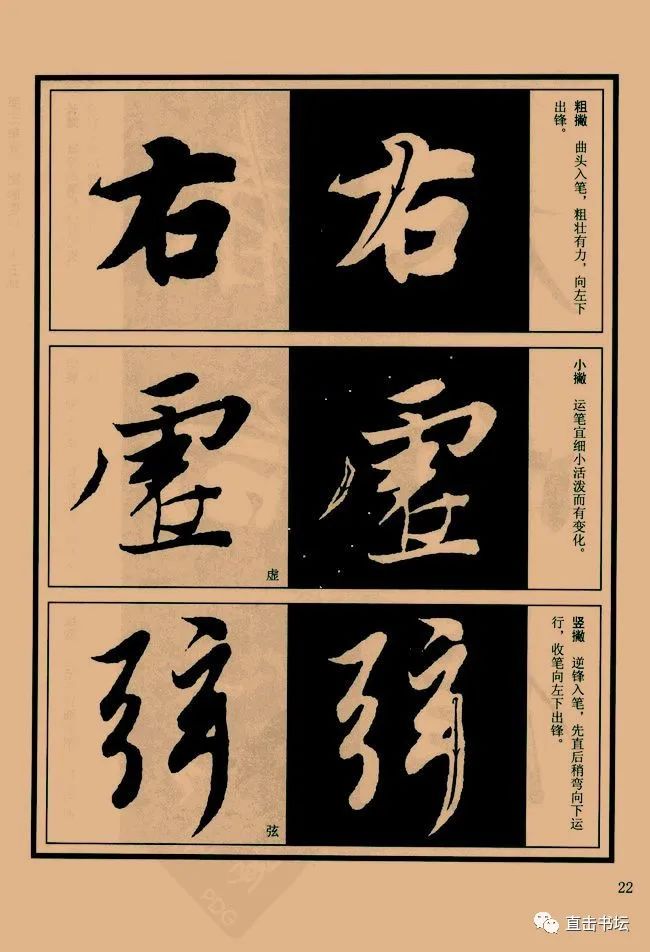 粗撇　曲头入笔，粗壮有力，向左下
出锋。
右
右
小撇　运笔宜细小活泼而有变化。
虚
虚
虚
竖撇　逆锋入笔，先直后稍弯向下运
行，收笔向左下出锋。
弦
弦
弦
22
直击书坛
PDG